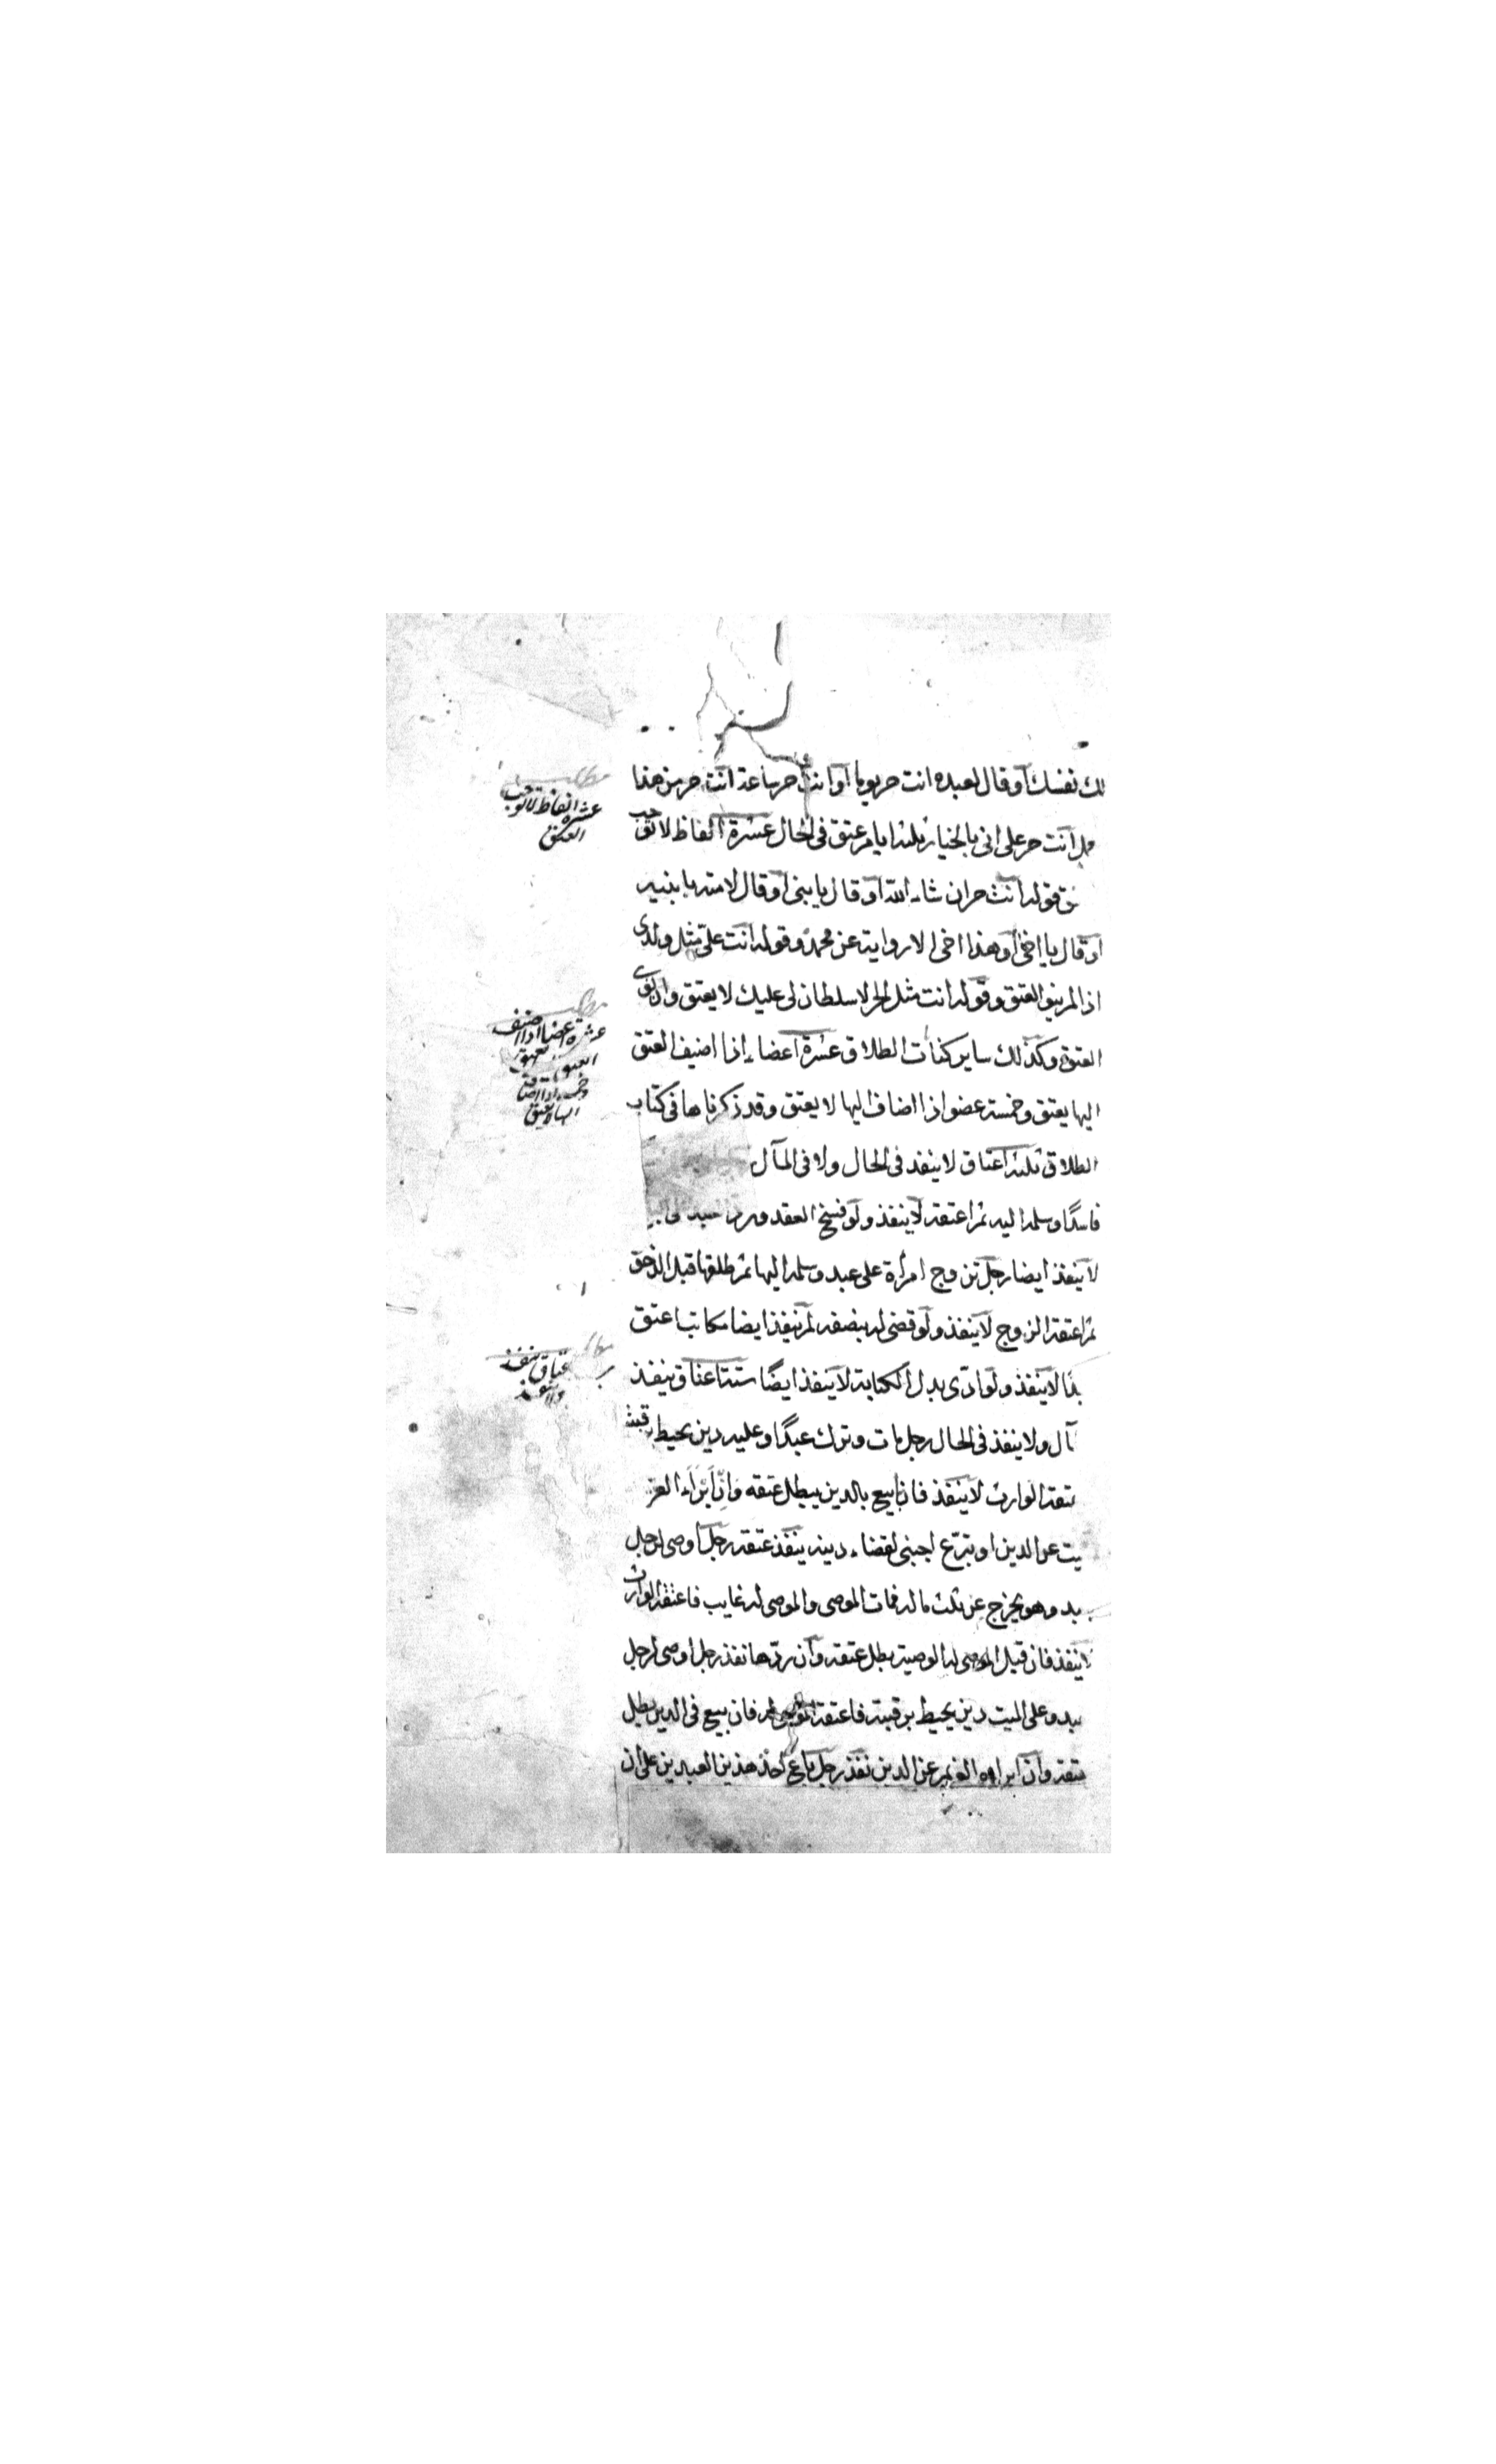 لك نفسك أو قال لعبده انت حر يوما او انت حر ساعة انت حر من هذا
انت حر على انى بالخيار ثلثة ايام عتق فى الحال عشرة الفاظ لا توجب
فقوله انت حر ان شاء الله او قال يا بنى او قال لامته يا بنية
او قال يا اخى او هذا اخى الا رواية عن محمد وقوله انت على مثل ولدى
اذا لم ينو العتق وقوله انت مثل الحر لا سلطان لى عليك لا يعتق وان نوى
العتق وكذلك ساير كنات الطلاق عشرة اعضاء اذا اضيف العتق
اليها يعتق وخمسة عضو اذا اضاف اليها لا يعتق وقد ذكرناها فى كتاب
الطلاق ثلثة اعتاق لا ينفذ فى الحال ولا فى المآل
فاسدًا وسلمه اليه ثم اعتقه لا ينفذ ولو فسخ العقد
لا ينفذ ايضا رجل تزوج امرأة على عبد وسلمه اليها ثم طلقها قبل الدخول
ثم اعتقه الزوج لا ينفذ ولو قضى له بنصفه لم ينفذ ايضا مكاتب اعتق
لا ينفذ ولو ادى بدل الكتابة لا ينفذ ايضًا ستة اعتاق ينفذ
ولا ينفذ فى الحال رجل مات وترك عبدًا وعليه دين يحيط برقبته
الوارث لا ينفذ فان بيع بالدين يبطل عتقه وان ابراء
عن الدين او تبرع اجنبى لقضاء دينه ينفذ عتقه رجل اوصى لرجل
وهو يخرج عن ثلث ماله فمات الموصى والموصى له غايب فاعتقه الوارث
لا ينفذ فان قبل الموصى له الوصية بطل عتقه وان ردها نفذ رجل اوصى لرجل
وعلى الميت دين يحيط برقبته فاعتقه الموصى له فان بيع فى الدين بطل
عتقه وان ابراه الغريم عن الدين نفذ رجل باع احد هذين العبدين على ان
مطلب
عشرة الفاظ لا توجب
العتق
مطلب
عشرة اعضا اذا اضيف
العتق يعتق
وخمسة اذا اضاف
اليها لا يعتق
مطلب
اعتاق ينفذ
ولا ينفذ